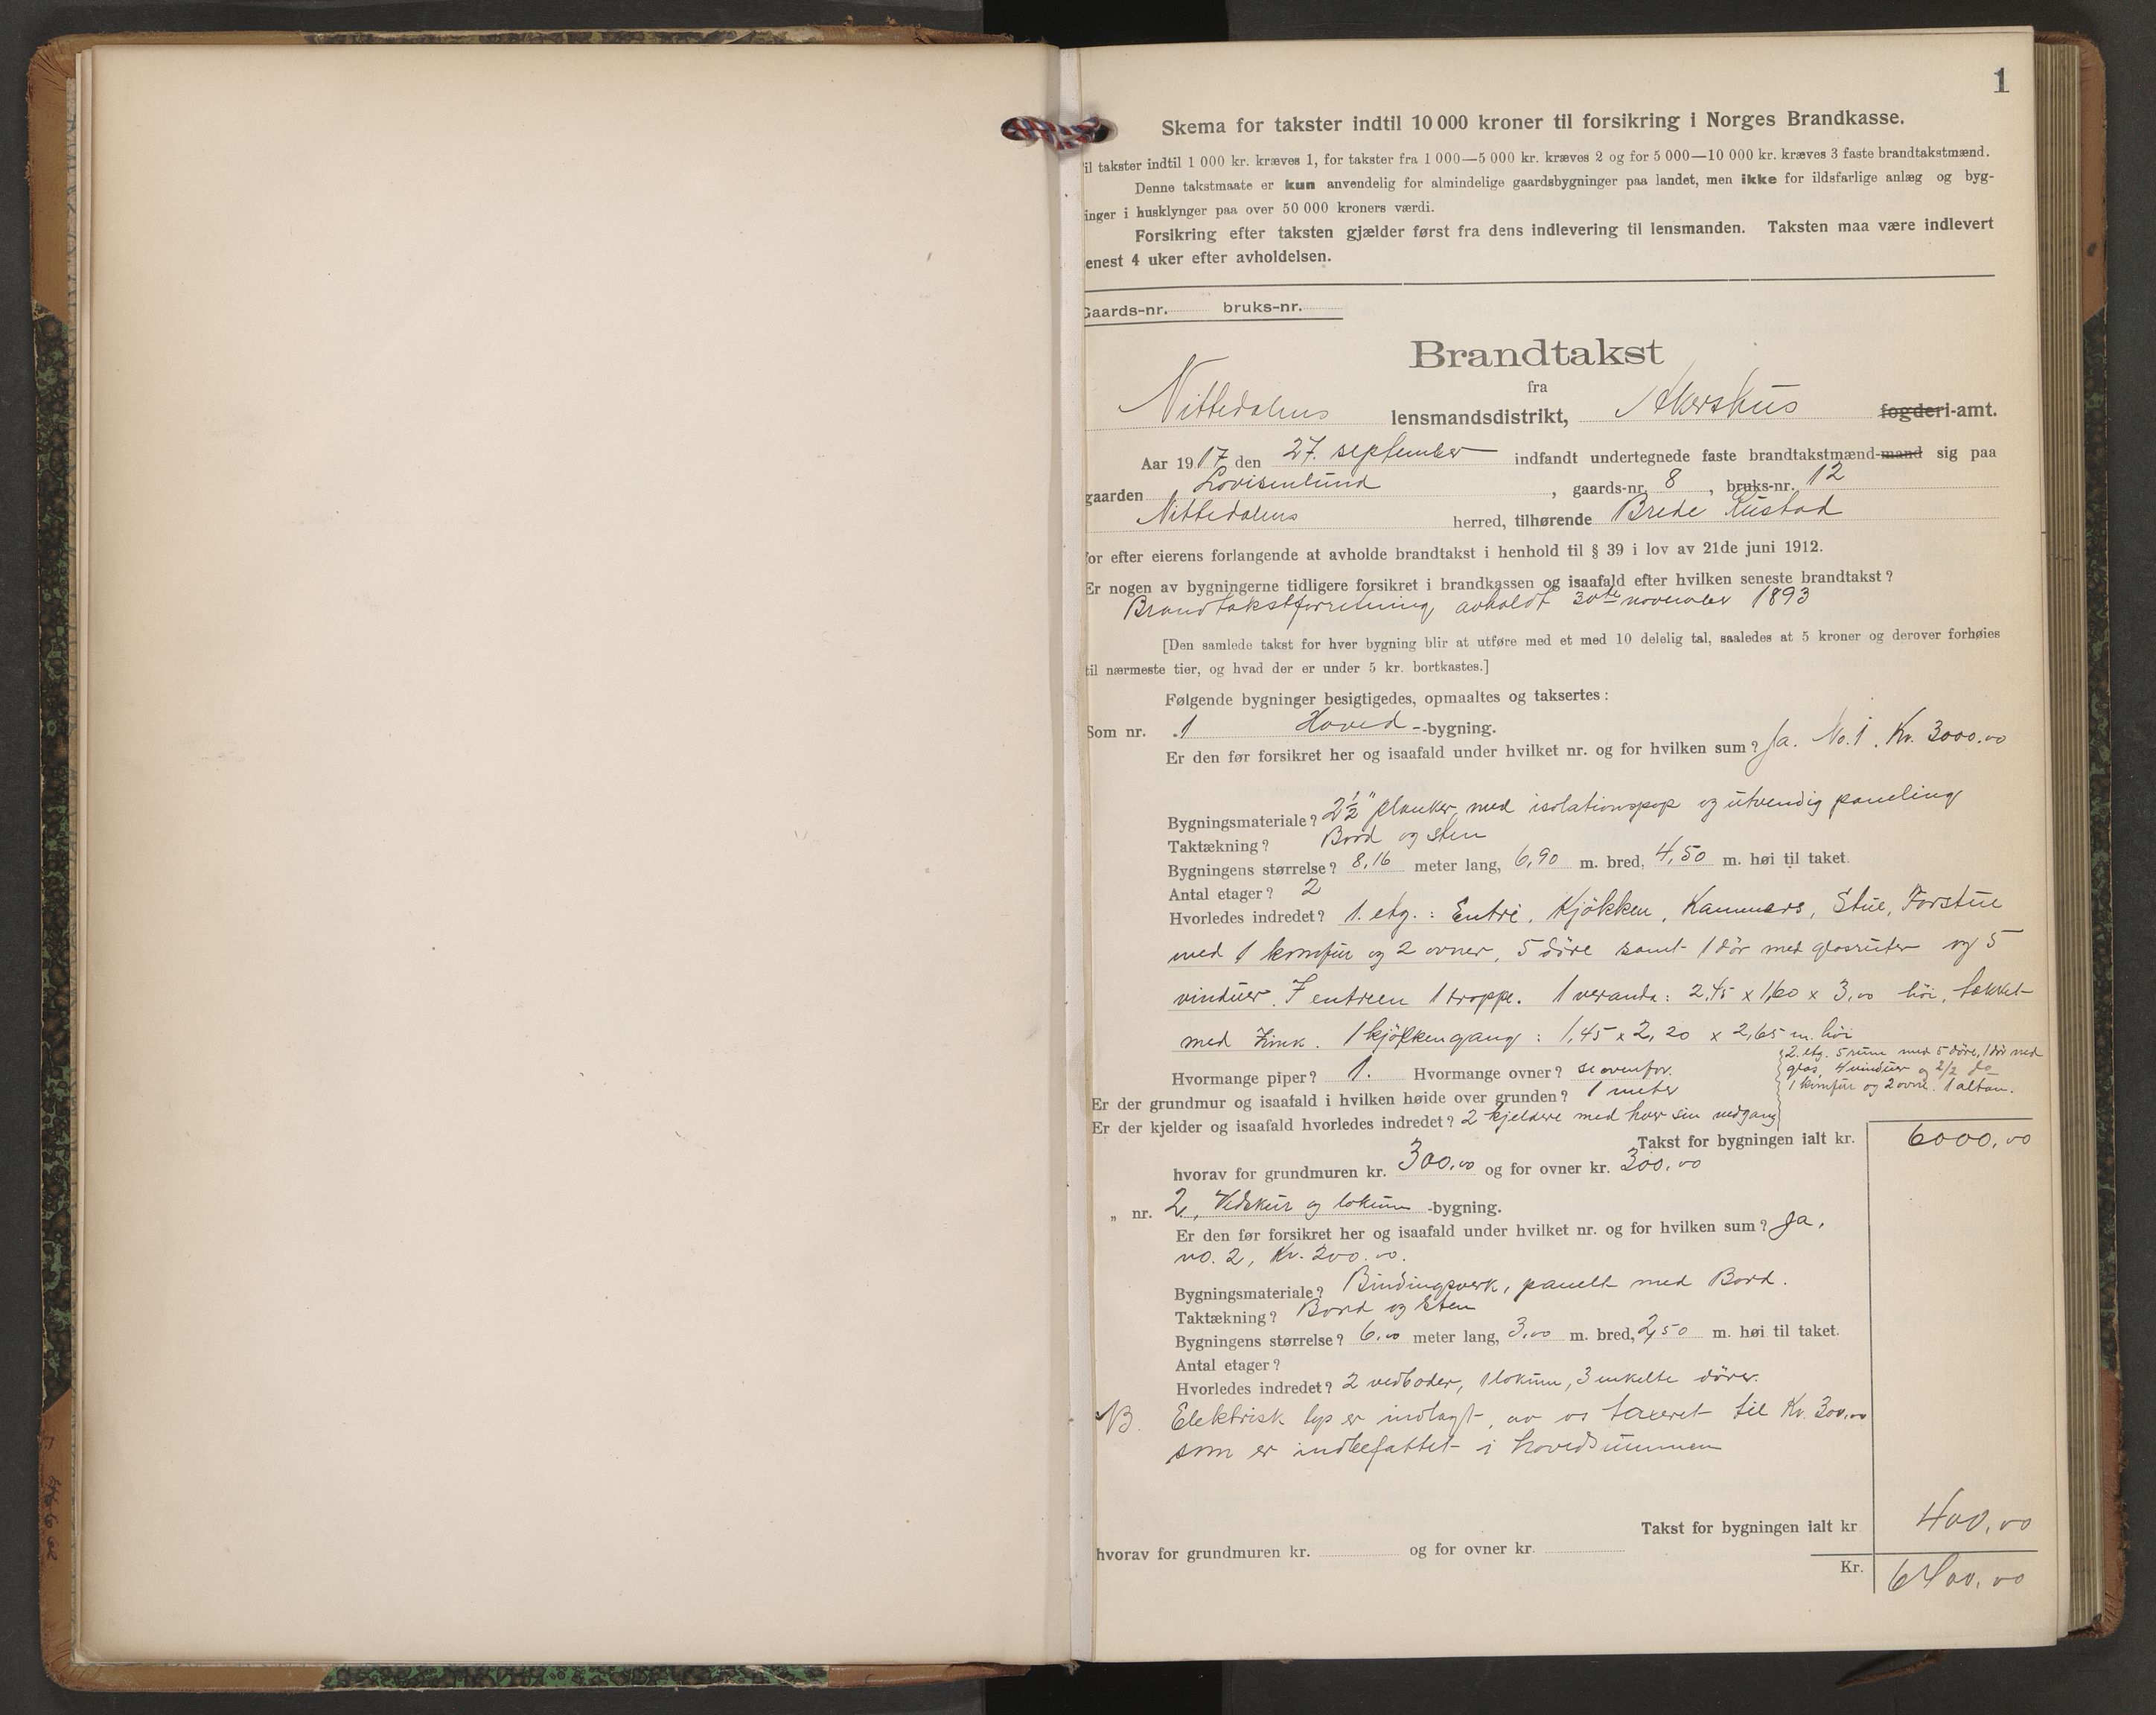 1
Skema for takster indtil 10 000 kroner til forsikring i Norges Brandkasse.
il takster indtil 1 000 kr. kræves 1, for takster fra 1 000—5 000 kr. kræves 2 og for 5 000—10 000 kr. kræves 3 faste brandtakstmænd.
Denne takstmaate er kun anvendelig for almindelige gaardsbygninger paa landet, men ikke for ildsfarlige anlæg og byg-
inger i husklynger paa over 50 000 kroners værdi.
Forsikring efter taksten gjælder først fra dens indlevering til lensmanden. Taksten maa være indlevert
enest 4 uker efter avholdelsen.
Gaards-nr. bruks-nr.
Brandtakst
fra
Nittedalens lensmandsdistrikt, Akershus fogderi-amt.
Aar 1917 den 27. september indfandt undertegnede faste brandtakstmænd-mand sig paa
gaarden Lovisenlund, gaards-nr. 8, bruks-nr. 12
Nittedalens herred, tilhørende Brede Rustad
for efter eierens forlangende at avholde brandtakst i henhold til § 39 i lov av 21de juni 1912.
Er nogen av bygningerne tidligere forsikret i brandkassen og isaafald efter hvilken seneste brandtakst?
Brandtakstforretning, avholdt 30te november 1893
[Den samlede takst for hver bygning blir at utføre med et med 10 delelig tal, saaledes at 5 kroner og derover forhøies
til nærmeste tier, og hvad der er under 5 kr. bortkastes.]
Følgende bygninger besigtigedes, opmaaltes og taksertes:
Som nr. 1 Hoved-bygning.
Er den før forsikret her og isaafald under hvilket nr. og for hvilken sum? Ja. No. 1. Kr. 3000.00
Bygningsmateriale? 2 1/2" planker, med isolationspap og utvendig paneling
Taktækning? Bord og sten
Bygningens størrelse? 8,16 meter lang, 6,90 m. bred, 4,50 m. høi til taket.
Antal etager? 2
Hvorledes indredet? 1. etg.: Entré, Kjökken, Kammers, Stue, Forstue
med 1 komfur og 2 ovner, 5 döre samt 1 dör med glasruter og 5
vinduer. I entreen 1 trappe. 1 veranda: 2,45 x 1,60 x 3,00 höi, tækket
med Zink. 1 kjökkengang: 1,45 x 2,20 x 2,65 m. höi
2. etg. 5 rum med 5 döre, 1 dör med
glas, 4 vinduer og 2/2 do
1 komfur og 2 ovne. 1 altan.
Hvormange piper? 1. Hvormange ovner? se ovenfor.
Er der grundmur og isaafald i hvilken høide over grunden? 1 meter
Er der kjelder og isaafald hvorledes indredet? 2 kjeldere med hver sin nedgang
Takst for bygningen ialt kr. 6000,00
hvorav for grundmuren kr. 300,00 og for ovner kr. 300,00
„ nr. 2, Vedskur og lokum -bygning.
Er den før forsikret her og isaafald under hvilket nr. og for hvilken sum? Ja,
no. 2, Kr. 200.00.
Bygningsmateriale? Bindingsverk, panelt med Bord.
Taktækning? Bord og Sten
Bygningens størrelse? 6,00 meter lang, 3,00 m. bred, 2,50 m. høi til taket.
Antal etager?
Hvorledes indredet? 2 vedboder, 1 lokum, 3 enkelte dörer.
NB. Elektrisk lys er indlagt, av os taxeret til Kr. 300,00
som er indbefattet i hovedsummen
Takst for bygningen ialt kr 400,00
hvorav for grundmuren kr. og for ovner kr.
Kr. 6400,00